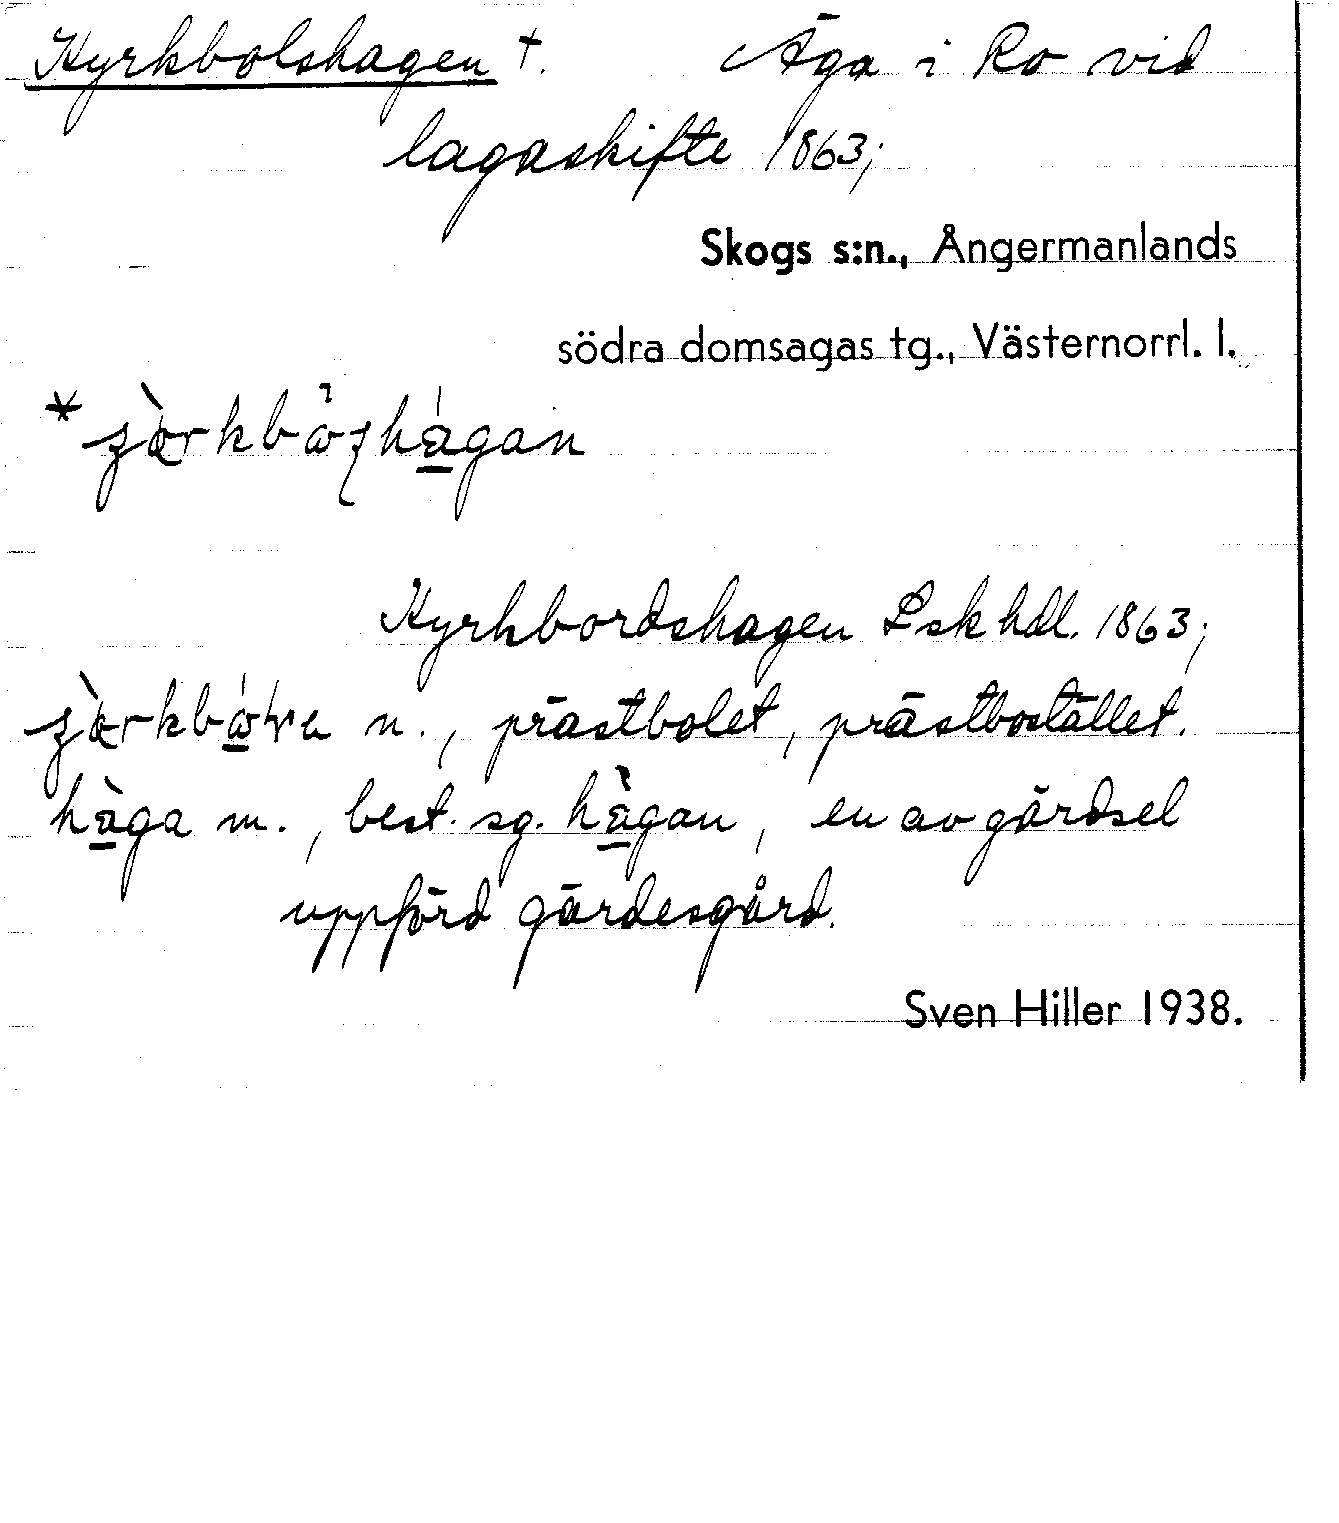 Kyrkbolshagen †. Äga i Ro vid
lagaskifte 1863;
Skogs s:n., Ångermanlands
södra domsagas tg., Västernorrl. l.
Kyrkbordshagen Lsk hdl. 1863;
n., prästbolet, prästbostället.
hàga m., best. sg. hàgan, en av gärdsel
uppförd gärdesgård.
Sven Hiller 1938.